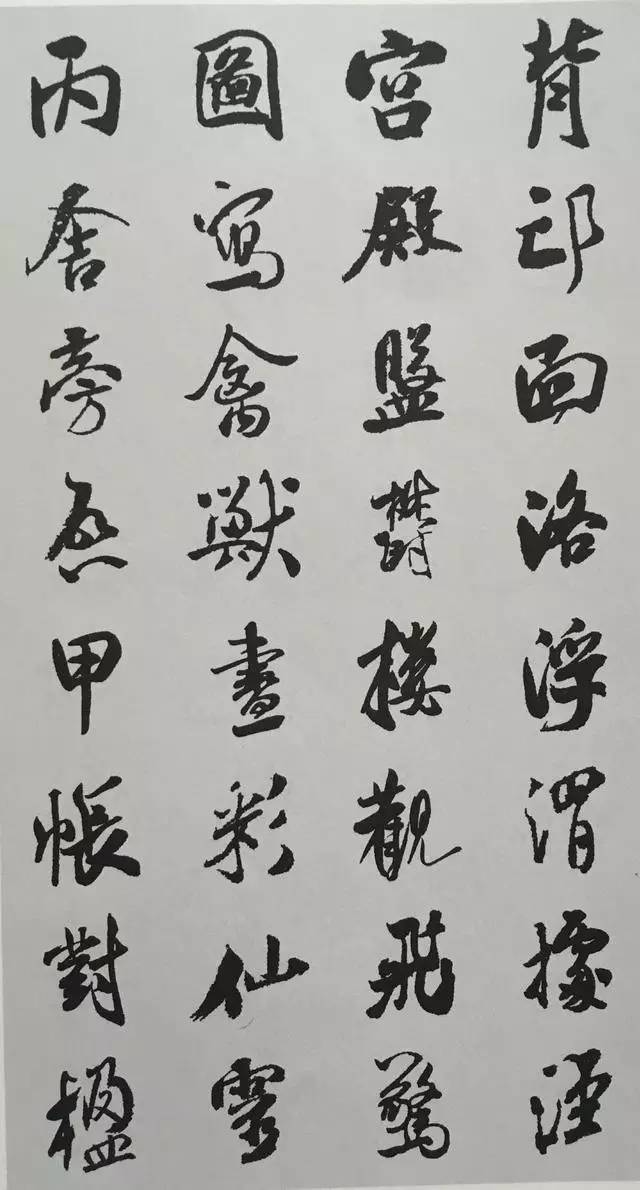 背邙面洛浮渭據涇
宮殿盤鬱樓觀飛驚
圖寫禽獸畫彩仙靈
丙舍旁啟甲帳對楹